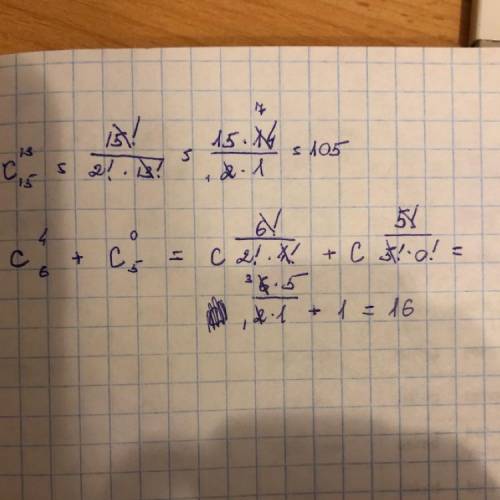 C₁₅¹³ = 15! / (2! · 13!) = (15 · 14⁷) / (₁2 · 1) = 105
C₆⁴ + C₅⁰ = C 6! / (2! · 4!) + C 5! / (5! · 0!) =
(³6 · 5) / (₁2 · 1) + 1 = 16